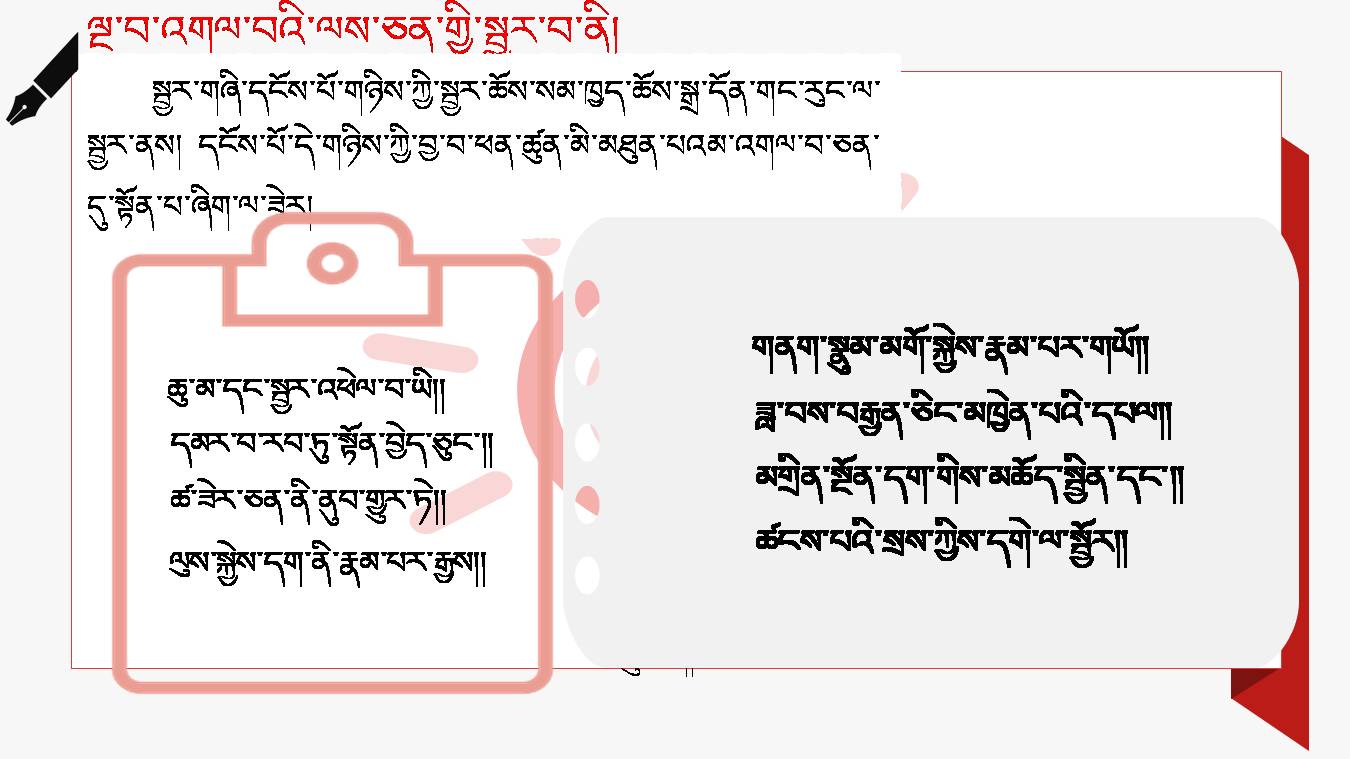 ལྔ་བ་འགལ་བའི་ལས་ཅན་གྱི་སྦྱར་བ་ནི།
སྦྱར་གཞི་དངོས་པོ་གཉིས་ཀྱི་སྦྱར་ཆོས་སམ་ཁྱད་ཆོས་སྒྲ་དོན་གང་རུང་ལ་
སྦྱར་ནས། དངོས་པོ་དེ་གཉིས་ཀྱི་བྱ་བ་ཕན་ཚུན་མི་མཐུན་པའམ་འགལ་བ་ཅན་
དུ་སྟོན་པ་ཞིག་ལ་ཟེར།
ཆུ་མ་དང་སྦྱར་འཕེལ་བ་ཡི།།
དམར་བ་རབ་ཏུ་སྟོན་བྱེད་ཅུང་།།
ཚ་ཟེར་ཅན་ནི་ནུབ་གྱུར་ཏེ།།
ལུས་སྐྱེས་དག་ནི་རྣམ་པར་རྒྱས།།
གནག་སྣུམ་མགོ་སྐྱེས་རྣམ་པར་གཡོ།།
ཟླ་བས་བརྒྱན་ཅིང་མཁྱེན་པའི་དཔལ།།
མགྲིན་སྔོན་དག་གིས་མཆོད་སྦྱིན་དང་།།
ཚངས་པའི་སྲས་ཀྱིས་དགེ་ལ་སྦྱོར།།